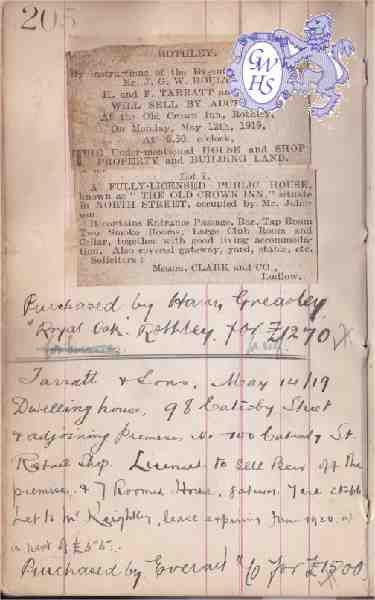 205
GWHS
ROTHLEY.
By instructions of the
Mr. J. G. W.
H. and F. TARRATT and
WILL SELL BY
At the Old Crown Inn, Rothley,
On Monday, May 12th, 1919,
At 6.30 o'clock,
Under-mentioned HOUSE and SHOP
PROPERTY and BUILDING LAND.
Lot 1.
A FULLY-LICENSED PUBLIC HOUSE,
known as "THE OLD CROWN INN," situate
in NORTH STREET, occupied by Mr. John-
son
It contains Entrance Passage, Bar, Tap Room
Two Smoke Rooms, Large Club Room and
Cellar, together with good living accommoda-
tion. Also covered gateway, yard, stable, etc.
Solicitors:
Messrs. CLARK and CO.,
Ludlow.
Purchased by Harry Greasley
"Royal Oak" Rothley for £1270
Tarratt & Sons. May 14/19
Dwelling house, 98 Catesby Street
& adjoining Premises, No 100 Catesby St.
Retail Shop. License to sell Beer off the
premises & 7 Roomed House,
Let to Mr Keightley, lease expiring June 1920, at
a rent of £55.
Purchased by Everard & Co for £1500.